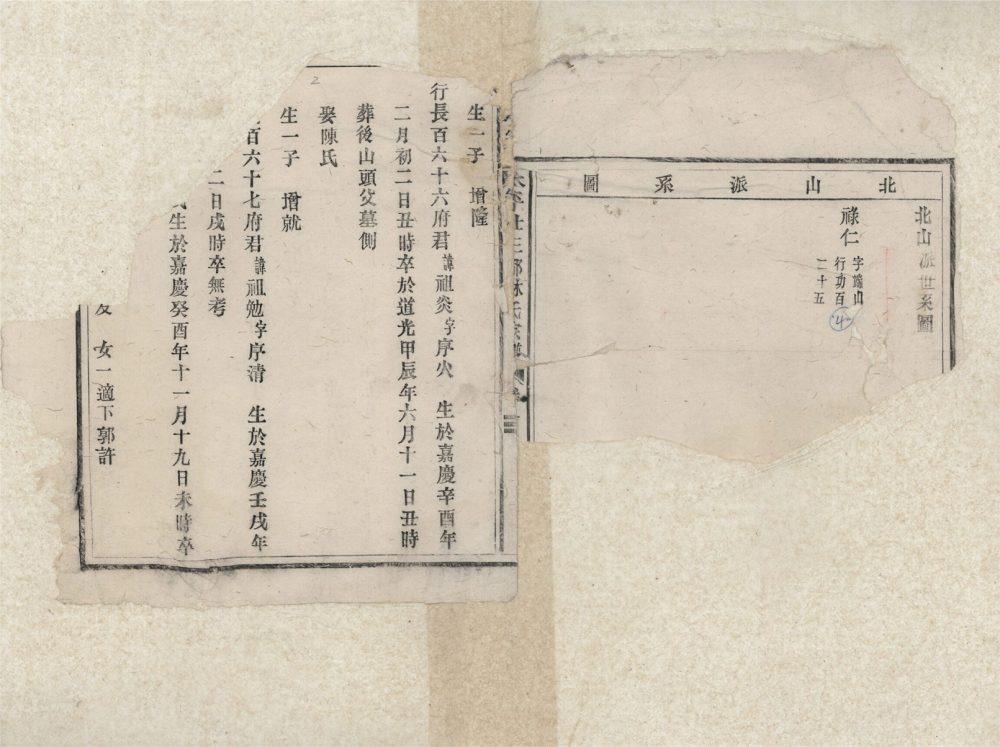 北山派世系圖
祿仁 字䜩山
行功百
二十五
4
北山派系圖
林氏宗譜
2
生一子 增隆
行長百六十六府君 諱祖炎字序火 生於嘉慶辛酉年
二月初二日丑時卒於道光甲辰年六月十一日丑時
葬後山頭父墓側
娶陳氏
生一子 增就
百六十七府君 諱祖勉字序清 生於嘉慶壬戌年
二日戌時卒無考
氏生於嘉慶癸酉年十一月十九日未時卒
女一適下郭許